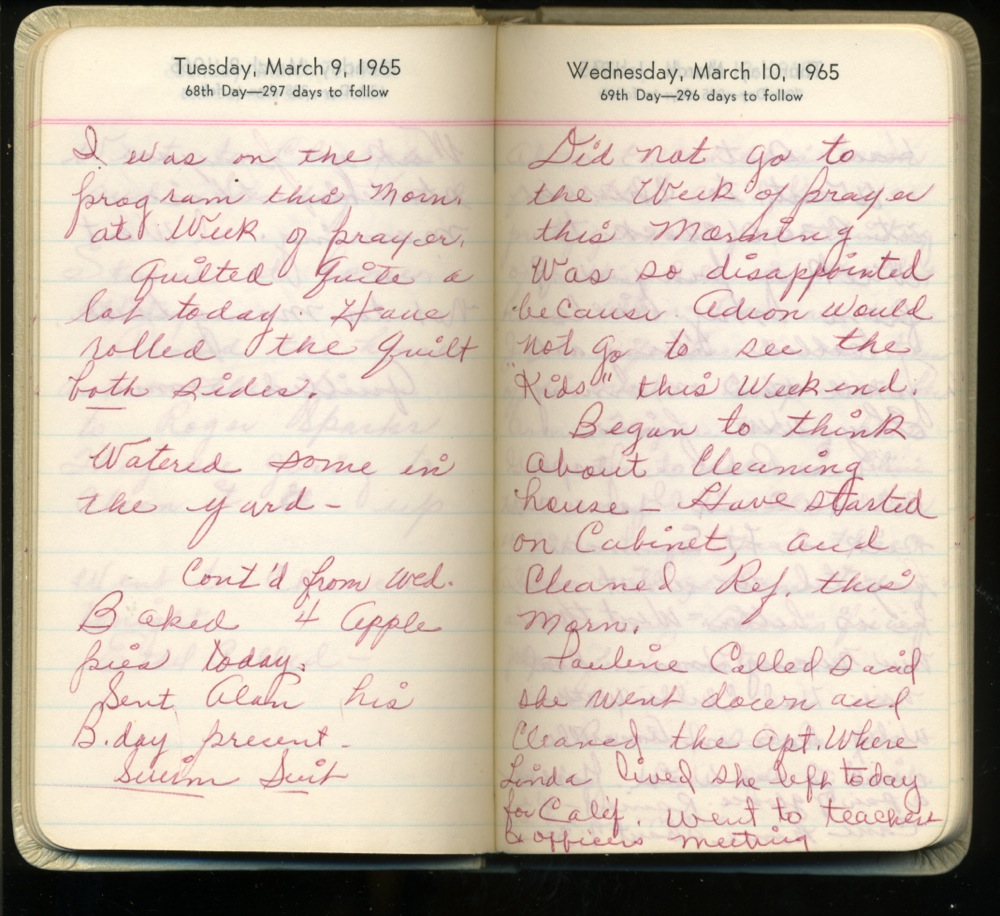 Tuesday, March 9, 1965
68th Day—297 days to follow
I was on the
program this Morn.
at Week of prayer.
Quilted Quite a
lot today. Have
rolled the Quilt
both sides.
Watered some in
the yard –
Cont'd from Wed.
Baked 4 Apple
pies today.
Sent Alan his
B.day present –
Swim Suit
Wednesday, March 10, 1965
69th Day—296 days to follow
Did not go to
the Week of prayer
this Morning
Was so disappointed
because Adron Would
not go to see the
"Kids" this Week end.
Began to think
About Cleaning
house – Have started
on Cabinet, and
Cleaned Ref. this
Morn.
Pauline Called said
she went down and
Cleaned the Apt. Where
Linda lived she left today
for Calif. Went to teachers
& officers meeting